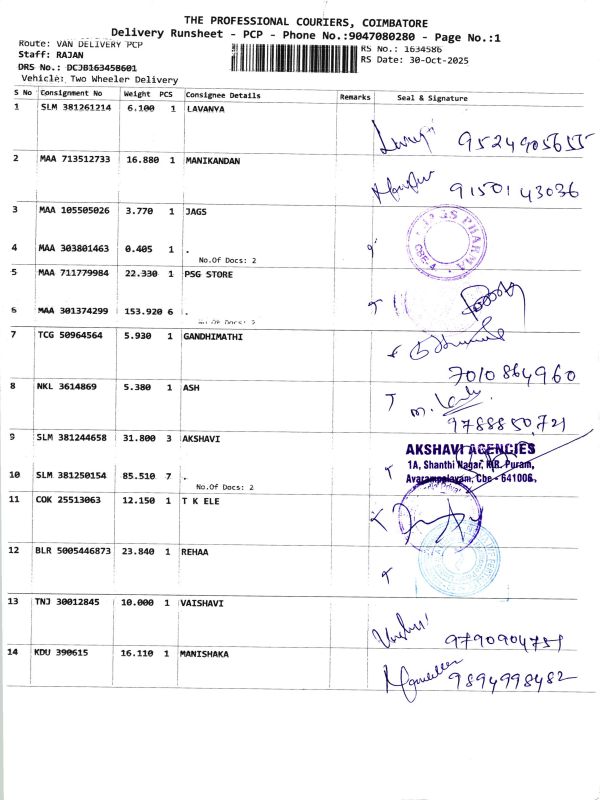 THE PROFESSIONAL COURIERS, COIMBATORE
Delivery Runsheet - PCP - Phone No.:9047080280 - Page No.:1
Route: VAN DELIVERY PCP
Staff: RAJAN
DRS No.: DCJB163458601
Vehicle: Two Wheeler Delivery
RS No.: 1634586
RS Date: 30-Oct-2025
S No Consignment No Weight PCS Consignee Details Remarks Seal & Signature
1 SLM 381261214 6.100 1 LAVANYA
9524905655
2 MAA 713512733 16.880 1 MANIKANDAN
9150143036
3 MAA 105505026 3.770 1 JAGS
JAGS PHARMA
CBE-4
4 MAA 303801463 0.405 1 .
No.Of Docs: 2
5 MAA 711779984 22.330 1 PSG STORE
6 MAA 301374299 153.920 6 .
7 TCG 50964564 5.930 1 GANDHIMATHI
7010864960
8 NKL 3614869 5.380 1 ASH
9788850721
9 SLM 381244658 31.800 3 AKSHAVI
AKSHAVI AGENCIES
1A, Shanthi Nagar, K.R. Puram,
Avarampalayam, Cbe - 641006.
10 SLM 381250154 85.510 7 .
No.Of Docs: 2
11 COK 25513063 12.150 1 T K ELE
12 BLR 5005446873 23.840 1 REHAA
13 TNJ 30012845 10.000 1 VAISHAVI
9790904751
14 KDU 390615 16.110 1 MANISHAKA
9894998482